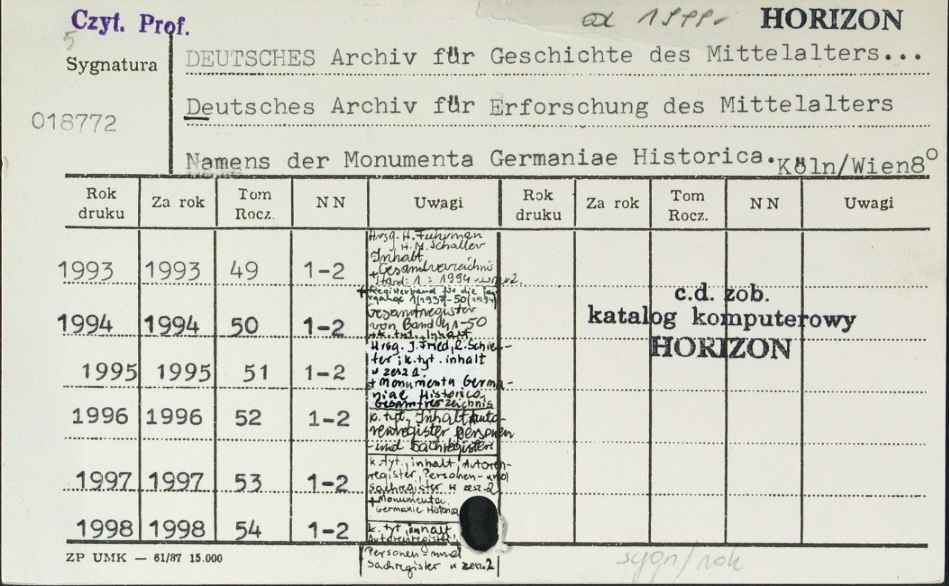 Czyt. Prof.
od 1999r
HORIZON
5
Sygnatura
DEUTSCHES Archiv für Geschichte des Mittelalters...
018772
Deutsches Archiv für Erforschung des Mittelalters
Namens der Monumenta Germaniae Historica. Köln/Wien8°
Rok druku Za rok Tom Rocz. NN Uwagi Rok druku Za rok Tom Rocz. NN Uwagi
Hrsg. H. Fuhrman
H. M. Schaller
Inhalt,
1993 1993 49 1-2 + Gesamtverzeichni
Stand: 1 : 1994 w nr 2.
+ Registerband für die Jah
rgänge 1(1937-50(1994)
Gesamtregister
1994 1994 50 1-2 von Band 41-50
k. tyt. Inhalt,
Hrsg. J. Fried, R. Schie-
ffer; k. tyt. inhalt
1995 1995 51 1-2 w zesz 2.
+ Monumenta Germa-
niae Historica
Gesamtverzeichnis
1996 1996 52 1-2 k. tyt, Inhalt, Auto-
renregister Personen
-und Sachregister
k. tyt, inhalt, Autoren-
register, Personen- und
1997 1997 53 1-2 Sachregister w zesz. 2
+ Monumenta
Germanie Historica
1998 1998 54 1-2 k. tyt, inhalt
Autorenregister
Personen- und
Sachregister w zesz. 2
c.d. zob.
katalog komputerowy
HORIZON
ZP UMK — 61/87 15.000
sygn/rok